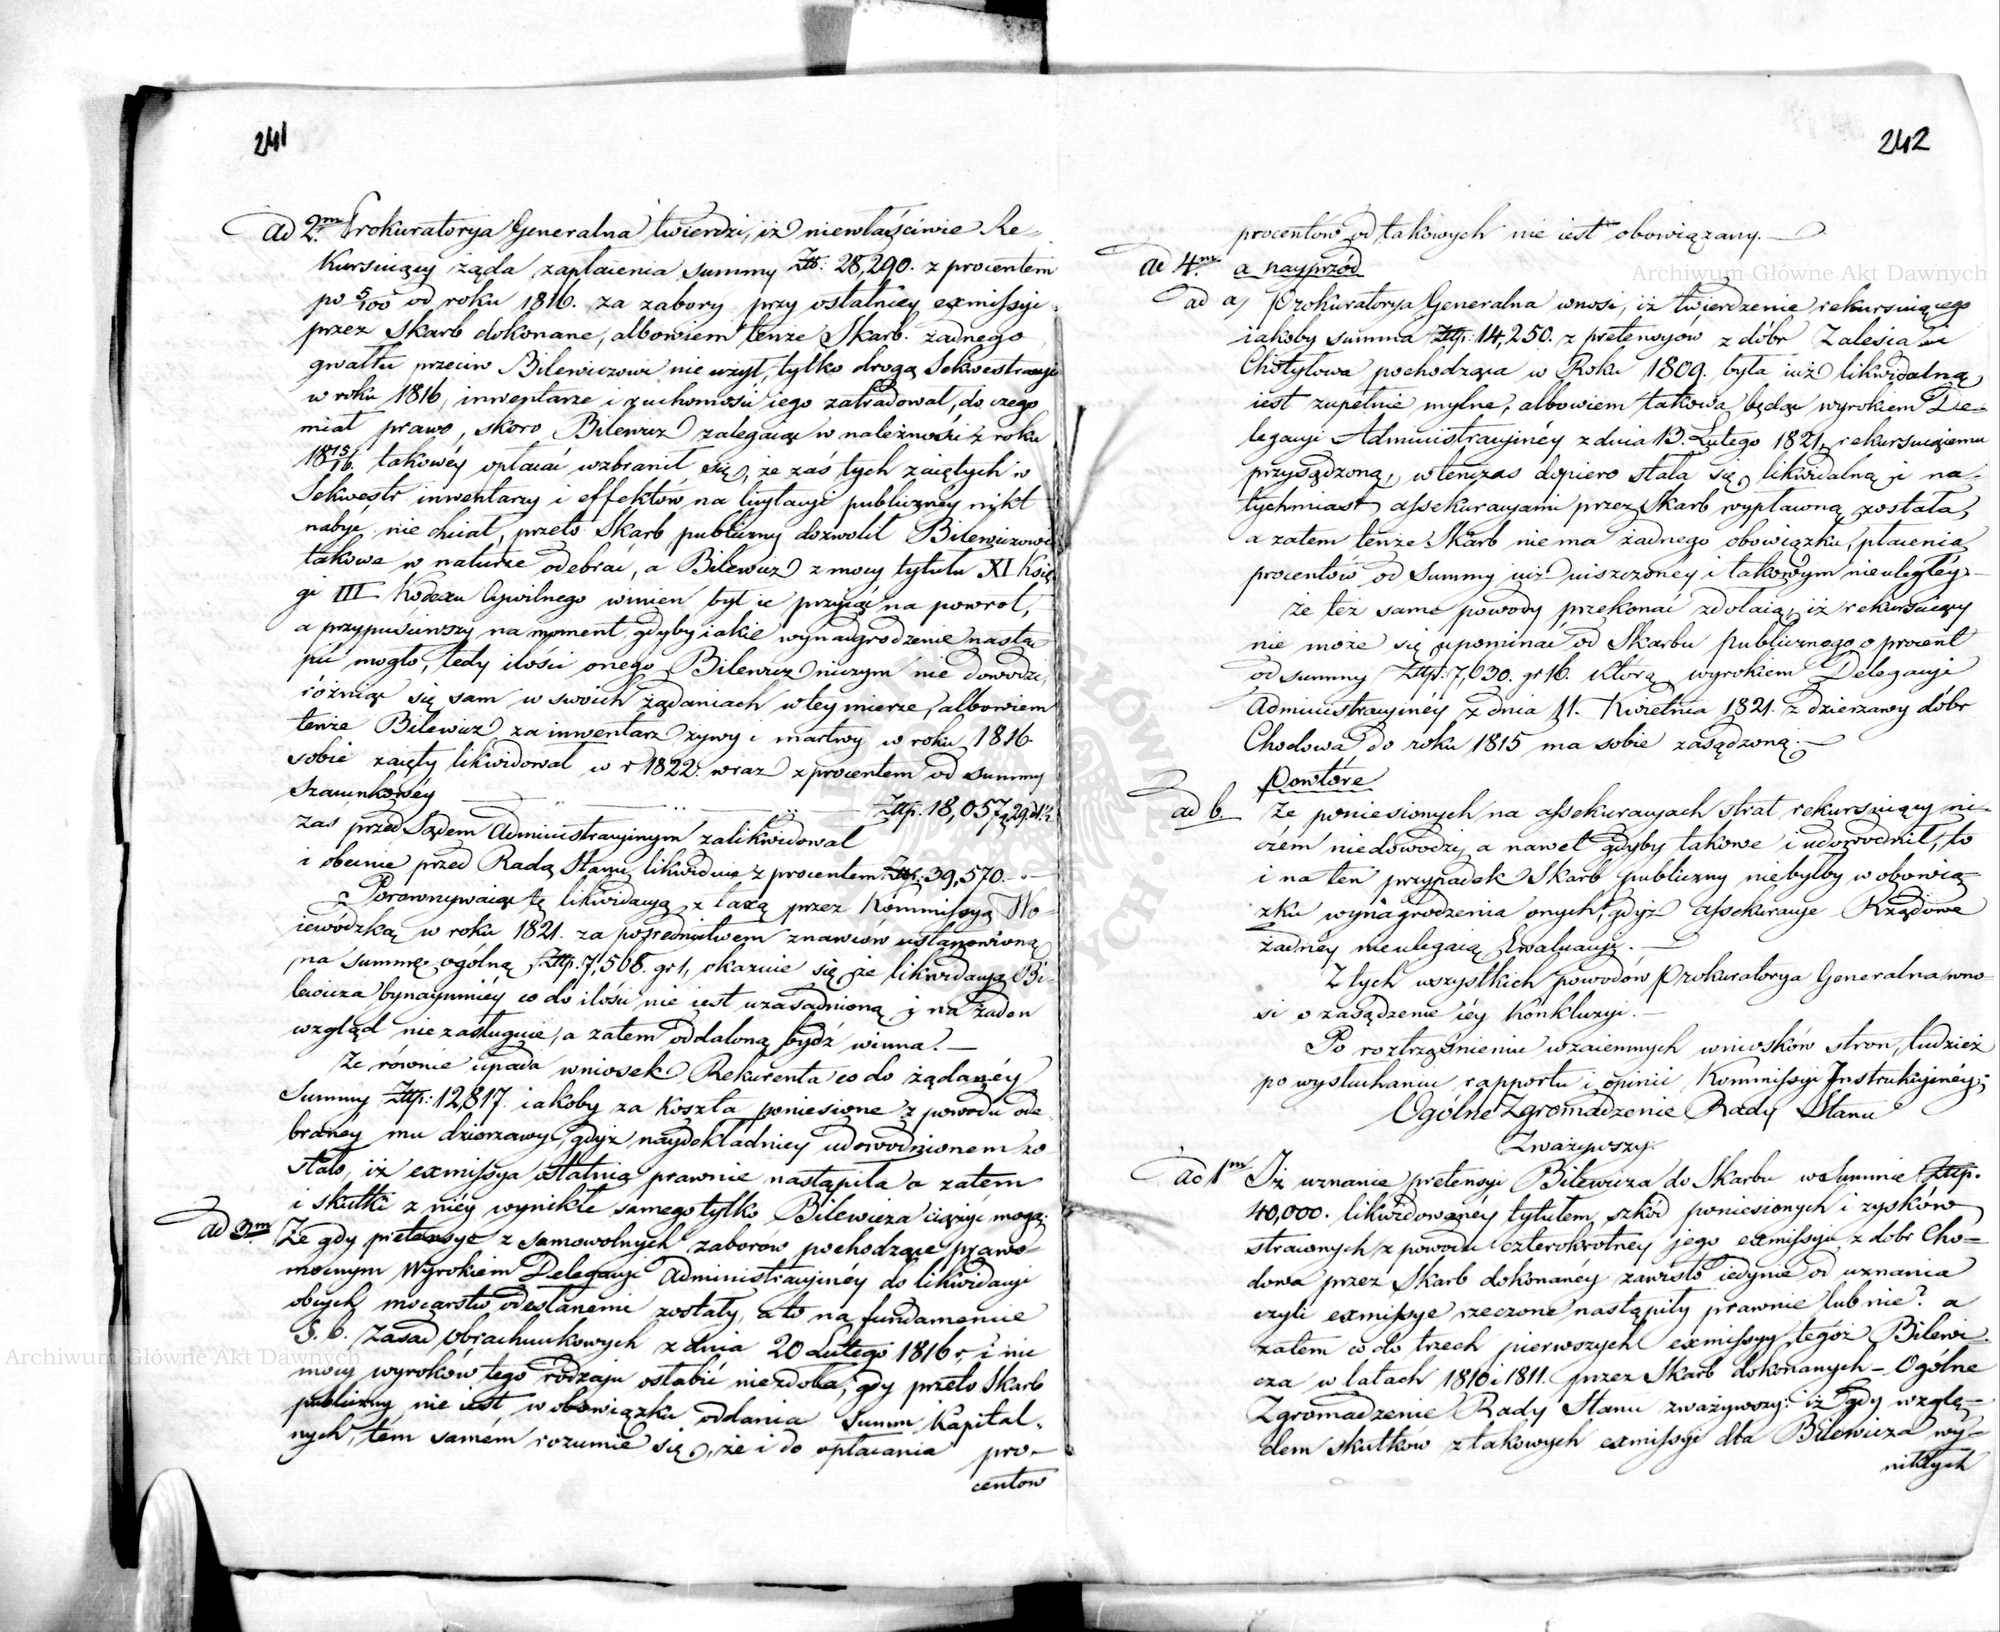 241
ad 2m. Prokuratorya Generalna twierdzi, iż niewłaściwie Re-
kursuiący żąda zapłacenia summy Złp: 28,290. z procentem
po 5/100 od roku 1816. za zabory przy ostatniey exmissyi
przez Skarb dokonane, albowiem tenże Skarb żadnego
gwałtu przeciw Bilewiczowi nie użył, tylko drogą Sekwestracyi
w roku 1816, inwentarze i ruchomości iego zatradował, do czego
miał prawo, skoro Bilewicz zalegaiąc w należności z roku
1815/16. takowéy opłacać wzbranił się, że zaś tych zaiętych w
Sekwestr inwentarzy i effektów na licytacyi publiczney nikt
nabyć nie chciał, przeto Skarb publiczny dozwolił Bilewiczowi
takowe w naturze odebrać, a Bilewicz z mocy tytułu XI Księ
gi III Kodexu Cywilnego winien był ie przyiąć na powrot,
a przypuściwszy na moment, gdyby iakie wynadgrodzenie nastą-
pić mogło, tedy ilości onego Bilewicz niczym nie dowodzi,
różniąc się sam w swoich żądaniach w tey mierze, albowiem
tenże Bilewicz za inwentarz żywy i martwy w roku 1816.
sobie zaięty likwidował w r 1822. wraz z procentem od summy
szacunkowéy Złp. 18,057, 29
zaś przed Sądem Administracyinym zalikwidował
i obecnie przed Radą Stanu likwiduie z procentem Złp. 39,570.
Porownywaiąc tę likwidacyą z taxą przez Kommissyą Wo-
iewódzką w roku 1821. za pośrednictwem znawcow ustanowioną
na summę ogólną Złp. 7,508. gr 1, okazuie się że likwidacyą Bi-
lewicza bynaymniéy co do ilości nie iest uzasadnioną i na żaden
wzgląd nie zasługuie, a zatem oddaloną bydź winna. —
Że równie upada wniosek Rekurenta co do żądanéy
Summy Złp: 12,817. iakoby za koszta poniesione z powodu ode-
braney mu dzierzawy, gdyż naydokładniey udowodnionem zo
stało, iż exmissya ostatnia prawnie nastąpiła a zatem
i skutki z niéy wynikłe samego tylko Bilewicza ciążyć mogą.
ad 3m. Że gdy pretensye z samowolnych zaborów pochodzące prawo-
mocnym Wyrokiem Delegacyi Administracyinéy do likwidacyi
obcych mocarstw odesłanemi zostały, a to na fundamencie
§. 6. Zasad Obrachunkowych z dnia 20 Lutego 1816 r, i nic
mocy wyroków tego rodzaju osłabić niezdoła, gdy przeto Skarb
publiczny nie iest w obowiązku oddania Summ Kapital-
nych, tém samém rozumie się, że i do opłacania pro-
centow
242
procentów od takowych nie iest obowiązany. —
ad 4m. a nayprzód
ad a, Prokuratorya Generalna wnosi, iż twierdzenie rekursuiącego
iakoby summa Złp: 14,250. z pretensyów z dóbr Zalesia i
Chotyłowa pochodząca w Roku 1809. była iuż likwidalną,
iest zupełnie mylne, albowiem takowa będąc wyrokiem De-
legacyi Administracyinéy z dnia 13. Lutego 1821, rekursuiącemu
przysądzoną, wtenczas dopiero stała się likwidalną i na-
tychmiast assekuracyami przez Skarb wypłaconą została,
a zatem tenże Skarb nie ma żadnego obowiązku, płacenia
procentów od Summy iuż uiszczoney i takowym nieuległéy. —
że też same powody przekonać zdołaią, iż rekursuiący
nie może się upominać od Skarbu publicznego o procent
od summy Złp. 7,630. gr 16. którą wyrokiem Delegacyi
Administracyinéy z dnia 11. Kwietnia 1821. z dzierzawy dóbr
Chodowa do roku 1815 ma sobie zasądzoną. —
Powtóre
ad b. że poniesionych na assekuracyach strat rekursuiący ni-
czém niedowodzi, a nawet gdyby takowe i udowodnił, to
i na ten przypadek Skarb publiczny niebyłby w obowią-
zku wynagrodzenia onych, gdyż Assekuracye Rządowe
żadnéy nieulegaią Ewaluacyi. —
Z tych wszystkich powodów Prokuratorya Generalna wno-
si o zasądzenie iéy Konkluzyi. —
Po roztrząśnieniu wzaiemnych wniosków stron, tudzież
po wysłuchaniu rapportu i opinii Kommissyi Instrukcyinéy;
Ogólne Zgromadzenie Rady Stanu
Zważywszy.
ad 1m Iż uznanie pretensyi Bilewicza do Skarbu w Summie Złp.
40,000. likwidowanéy tytułem szkód poniesionych i zysków
straconych z powodu czterokrotney jego exmissyi z dóbr Cho-
dowa przez Skarb dokonanéy zawisło iedynie od uznania
czyli exmissye rzeczone nastąpiły prawnie lub nie? a
zatem co do trzech pierwszych exmissyy tegoż Bilewi-
cza w latach 1810 i 1811. przez Skarb dokonanych — Ogólne
Zgromadzenie Rady Stanu zważywszy: iż gdy wzglę-
dem skutków z takowych exmissyi dla Bilewicza wy-
nikłych
Archiwum Główne Akt Dawnych
Archiwum Główne Akt Dawnych